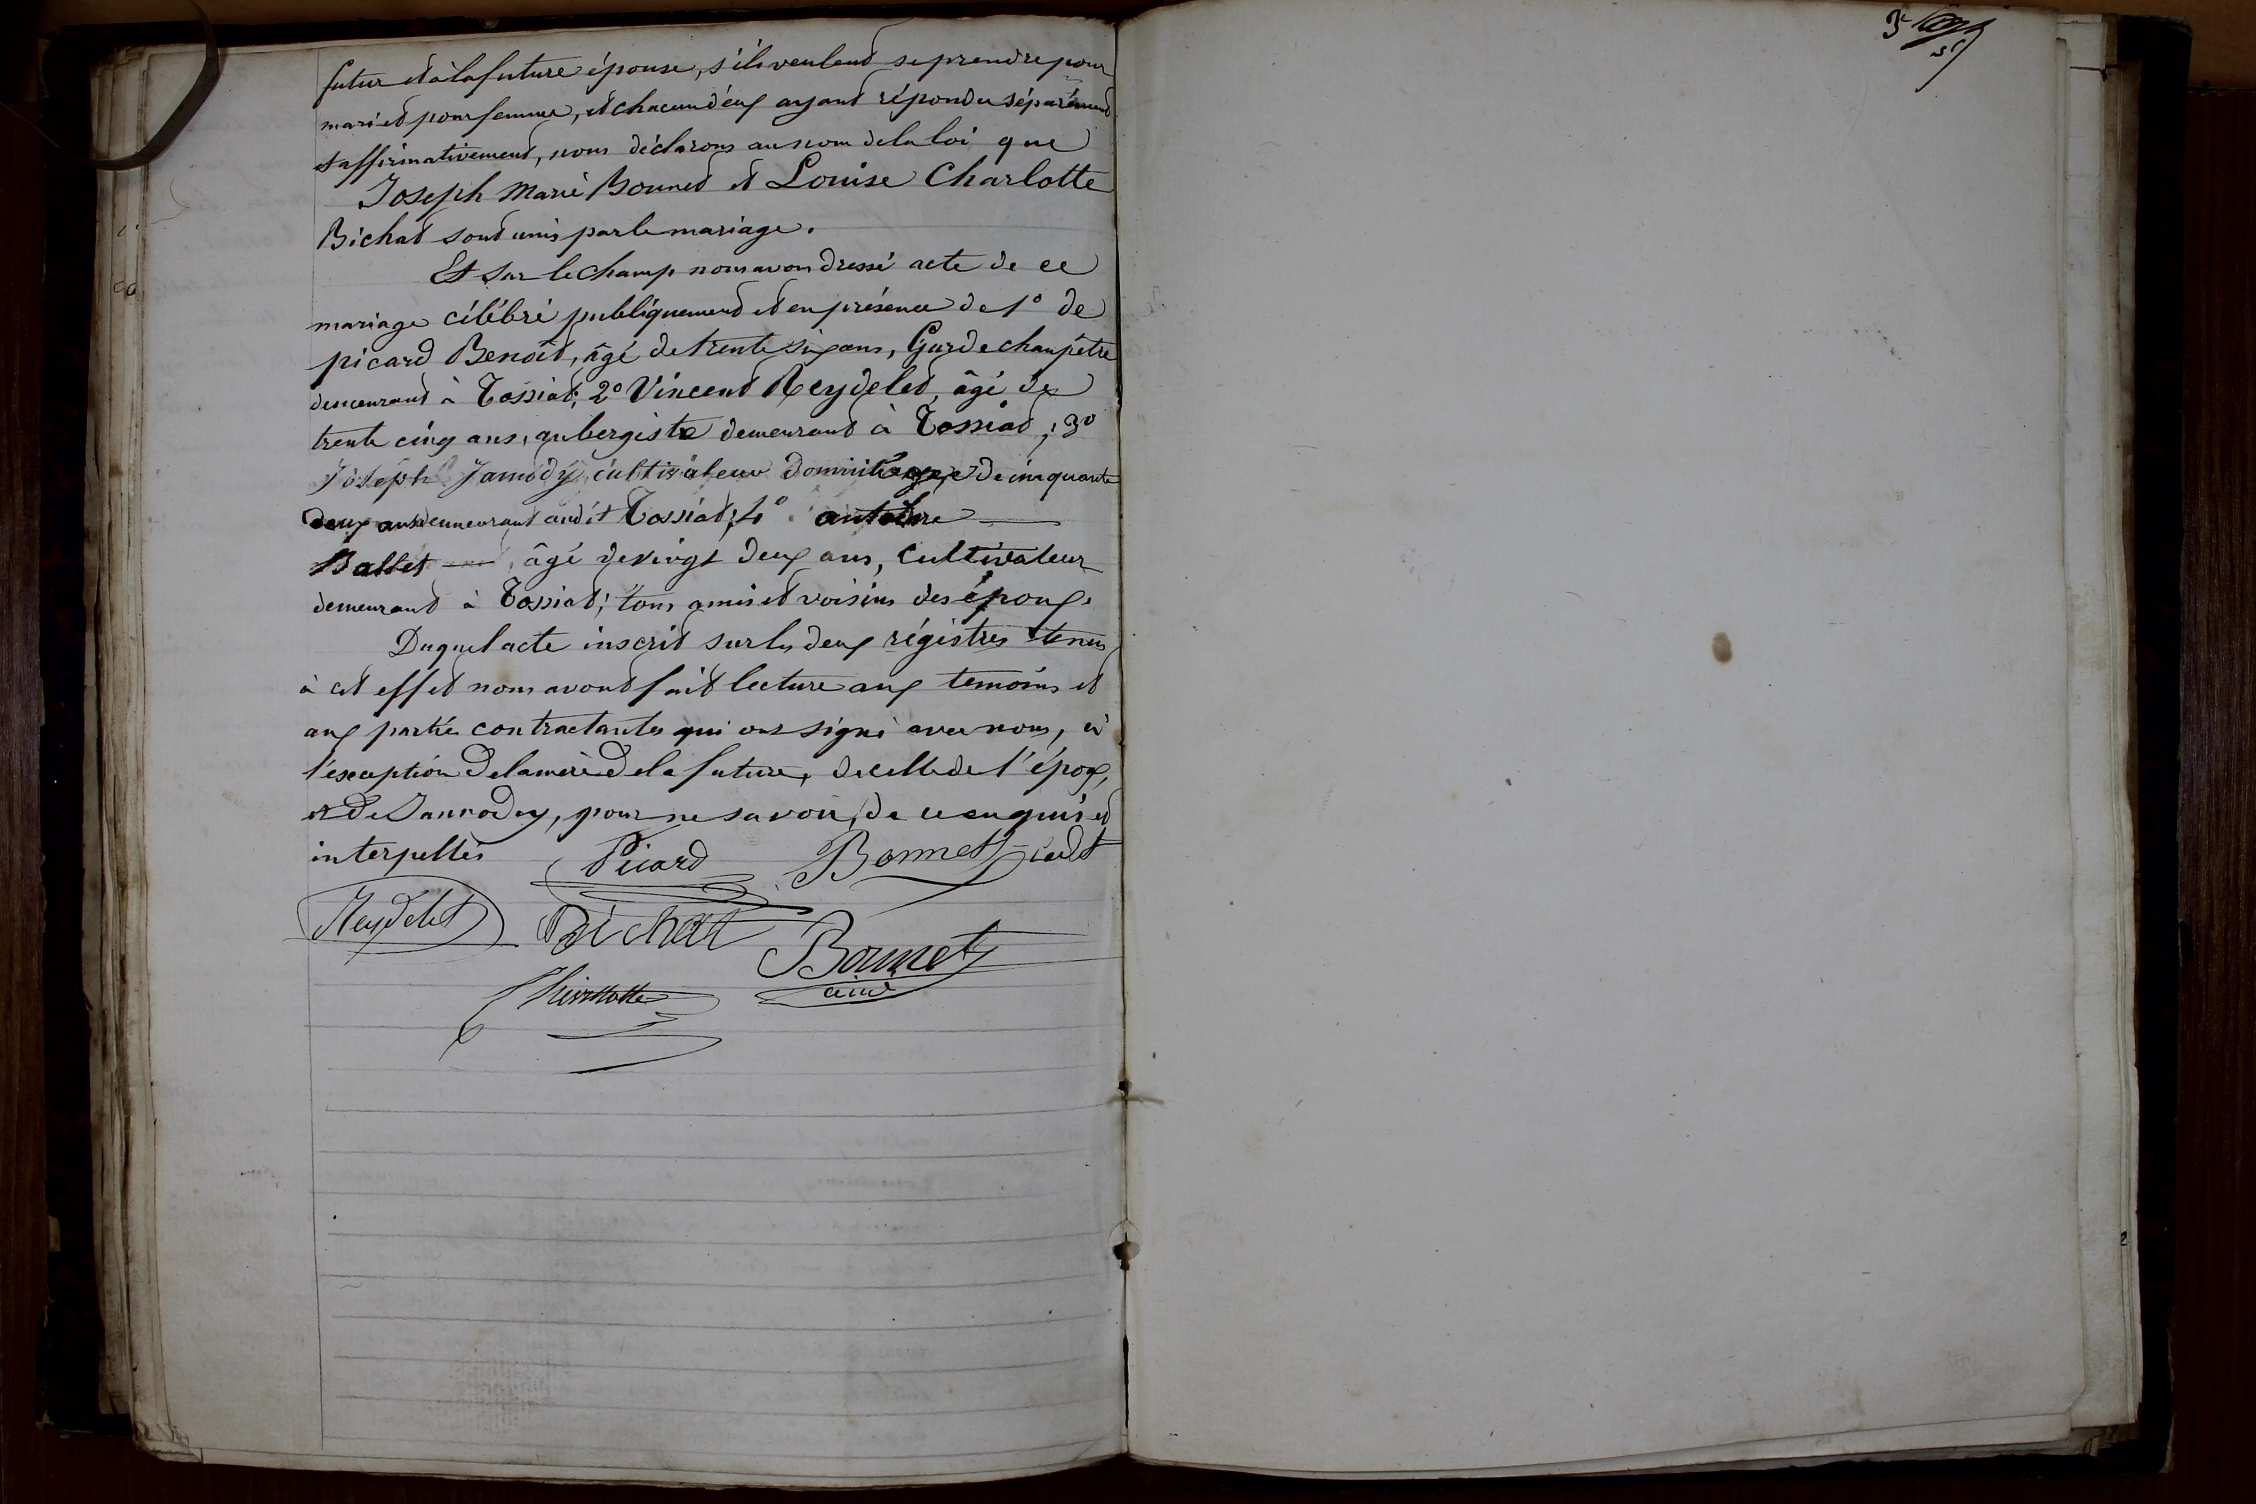 futur et à la future épouse, s'ils veulent se prendre pour
mari et pour femme, et chacun d'eux ayant répondu séparément
et affirmativement, nous déclarons au nom de la loi que
Joseph Marie Bonnet et Louise Charlotte
Bichat sont unis par le mariage.
Et sur le champ nous avons dressé acte de ce
mariage célébré publiquement et en présence de 1° de
picard Benoît, âgé de trente six ans, Garde champêtre
demeurant à Tossiat; 2° Vincent Reydelet, âgé de
trente cinq ans, aubergiste demeurant à Tossiat; 3°
Joseph Jamody, cultivateur agé de cinquante
deux ans demeurant audit Tossiat; 4° antoine
Ballet âgé de vingt deux ans, Cultivateur
demeurant à Tossiat; tous amis et voisins des époux.
Duquel acte inscrit sur les deux régistres tenus
à cet effet nous avons fait lecture aux temoins et
aux parties contractantes qui ont signé avec nous, à
l'exception de la mère de la future, de celle de l'époux,
et de Jamody, pour ne savoir, de ce enquis et
interpellés
Picard Bonnet cadet
Reydelet Bichat Bonnet
ainé